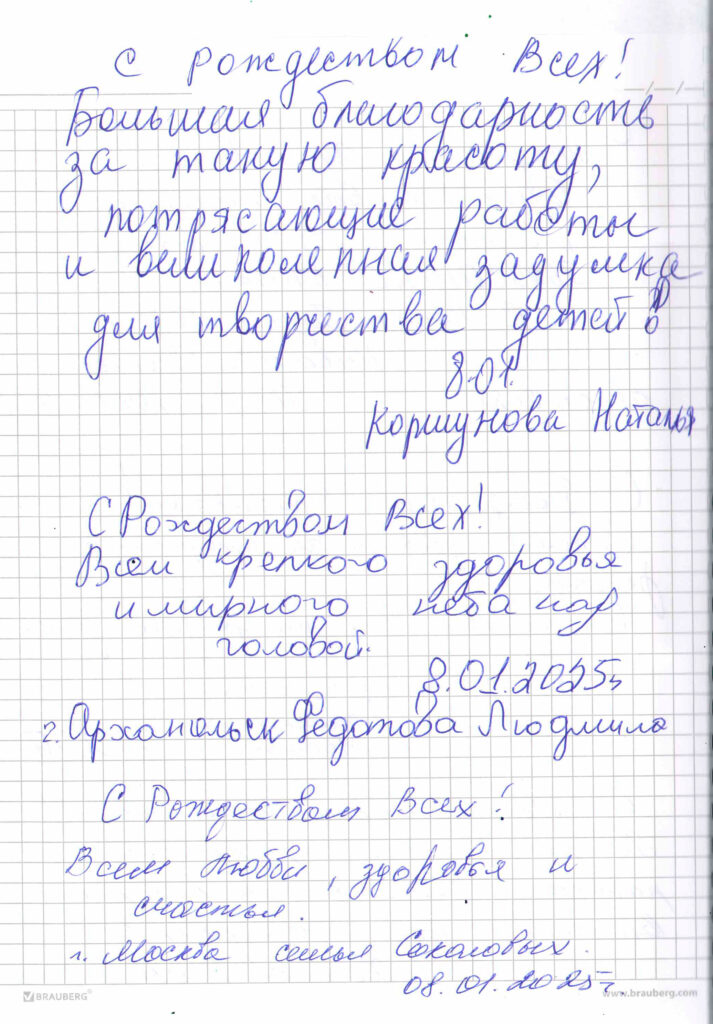 С Рождеством Всех!
Большая благодарность
за такую красоту,
потрясающие работы
и великолепная задумка
для творчества детей!
8.01.
Коршунова Наталья
С Рождеством Всех!
Всем крепкого здоровья
и мирного неба над
головой.
8.01.2025г
г. Архангельск Федотова Людмила
С Рождеством Всех!
Всем любви, здоровья и
счастья.
г. Москва семья Соколовых.
08.01.2025г.
BRAUBERG® www.brauberg.com